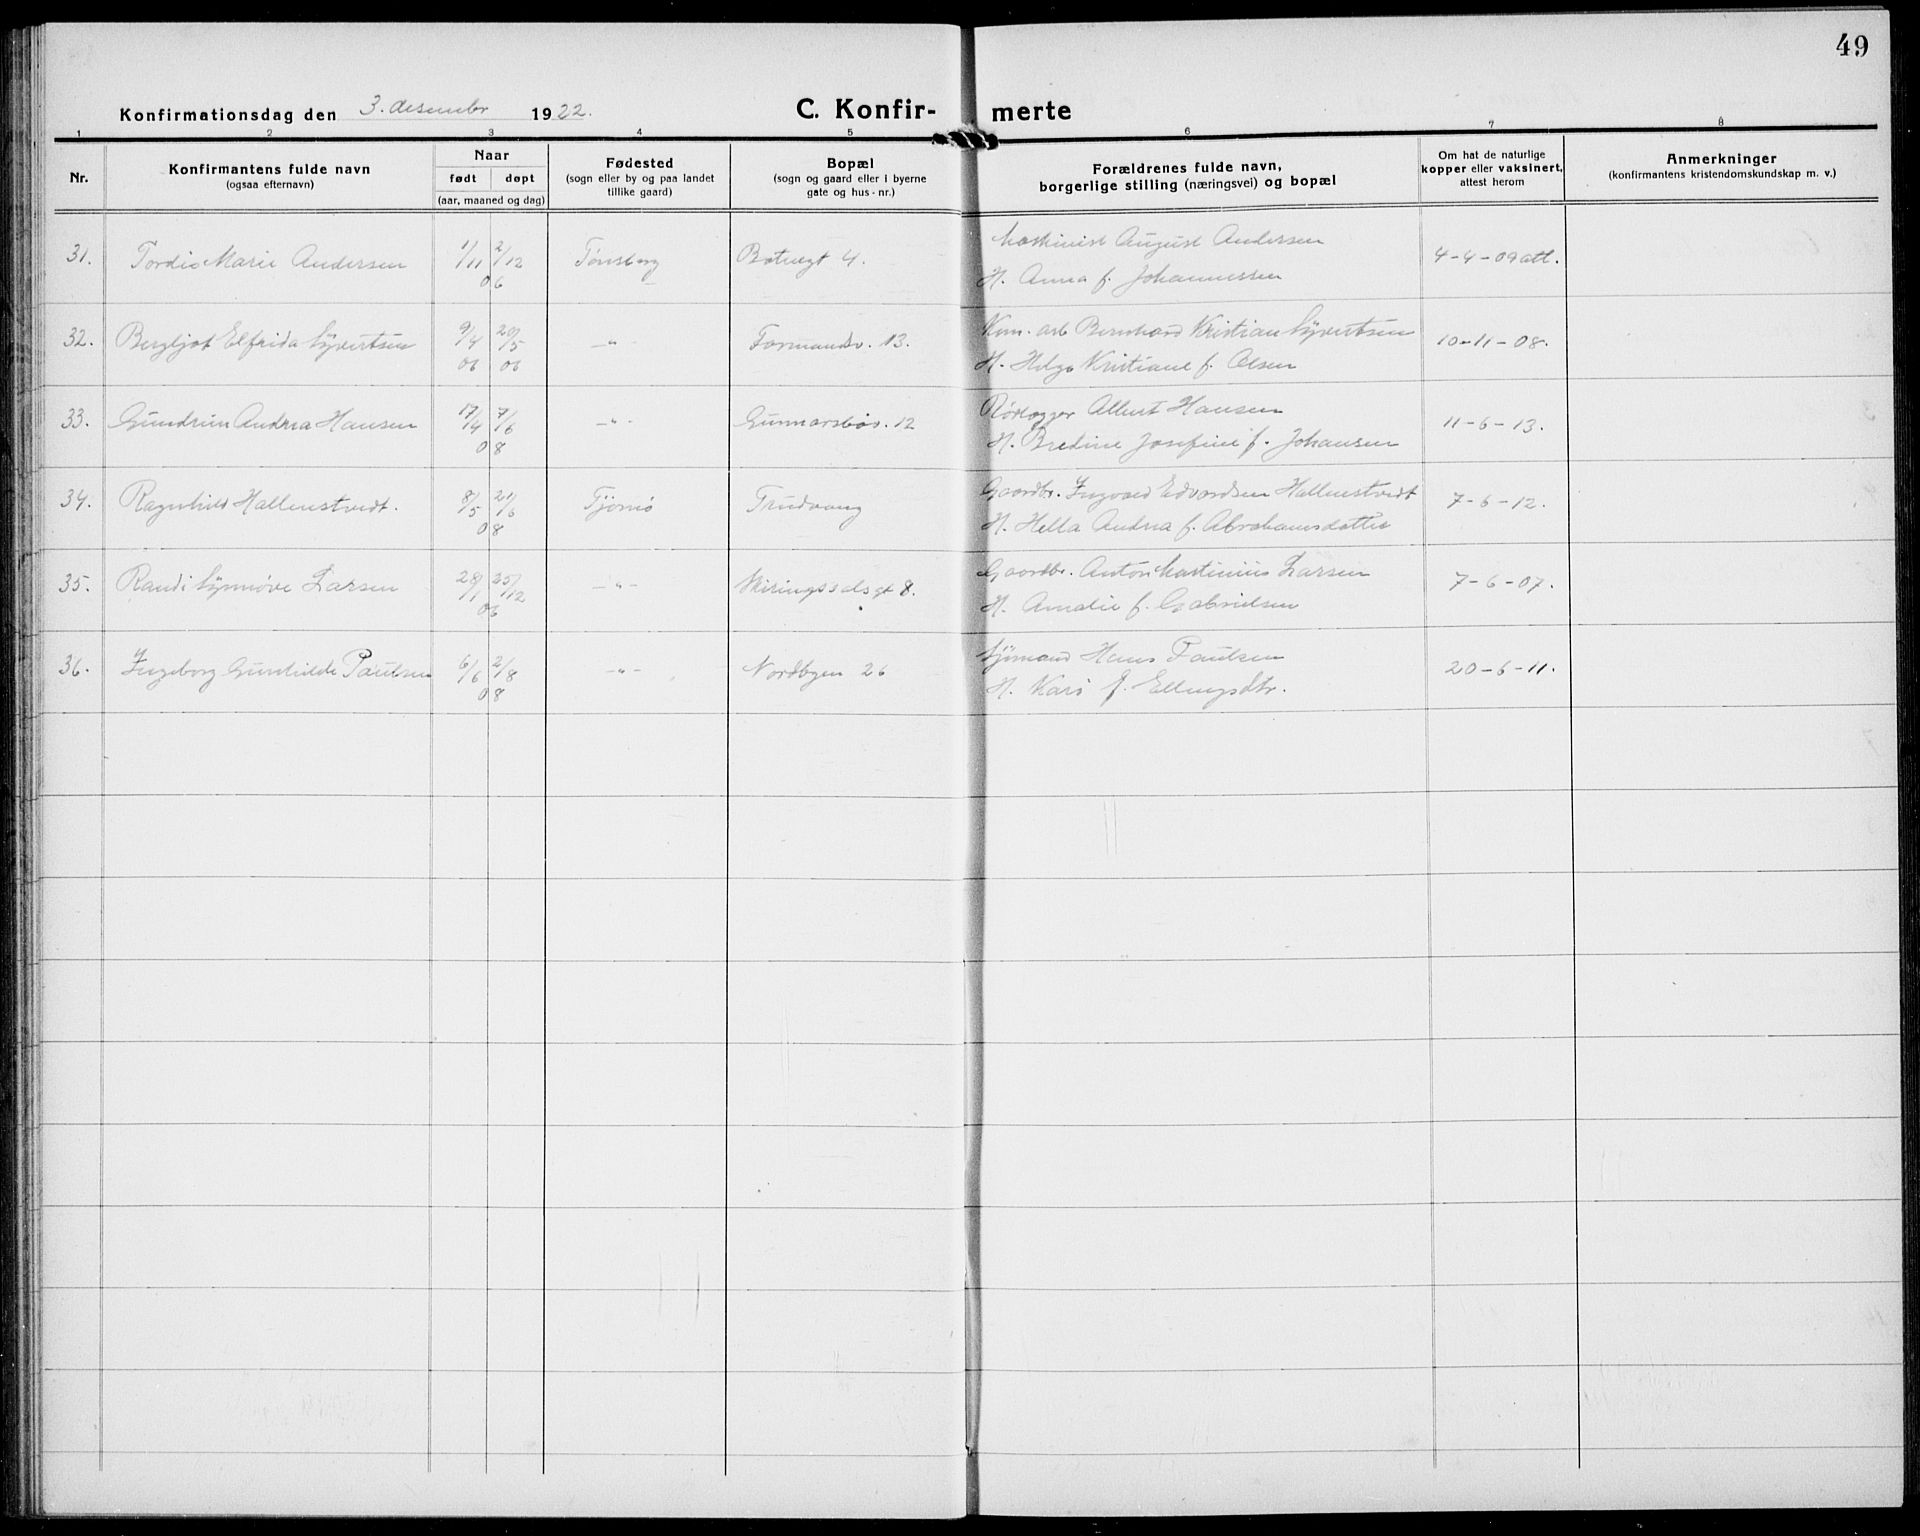 49
Konfirmationsdag den 3. desember 1922.
C. Konfir- merte
1 2 3 4 5 6 7 8
Nr.
Konfirmantens fulde navn
(ogsaa efternavn)
Naar
født døpt
(aar, maaned og dag)
Fødested
(sogn eller by og paa landet
tillike gaard)
Bopæl
(sogn og gaard eller i byerne
gate og hus-nr.)
Forældrenes fulde navn,
borgerlige stilling (næringsvei) og bopæl
Om hat de naturlige
kopper eller vaksinert,
attest herom
Anmerkninger
(konfirmantens kristendomskundskap m. v.)
31. Tordis Marie Andersen 1/11 2/12 06 Tønsberg 4. Maskinist August Andersen
H. Anna f. Johannessen 4-4-09 att.
32. Bergljot Elfrida Syvertsen 9/4 06 20/5 06 -"- 13. Kom. arb Bernhard Kristian Syvertsen
H. Helga Kristiane f. Olsen 10-11-08.
33. Gundrun Andrea Hansen 17/4 7/6 08 -"- Gunnarsbøv. 12 Rørlegger Albert Hansen
H. Bredine Josefine f. Johansen 11-6-13.
34. Ragnhild Hallenstvedt. 8/5 21/6 08 Tjømø Trudvang Gaardbr. Ingvald Edvardsen Hallenstvedt
H. Hella Andrea f. Abrahamsdatter 7-6-12.
35. Randi Synnøve Larsen 28/1 25/12 06 -"- Skiringssalsgt 8. Gaardbr. Anton Martinius Larsen
H. Amalie f. Gabrielsen 7-6-07.
36. Ingeborg Gunhilde Paulsen 6/6 2/8 08 -"- Nordbyen 26 Sjømand Hans Paulsen
H. Kari f. Ellingsdtr. 20-6-11.